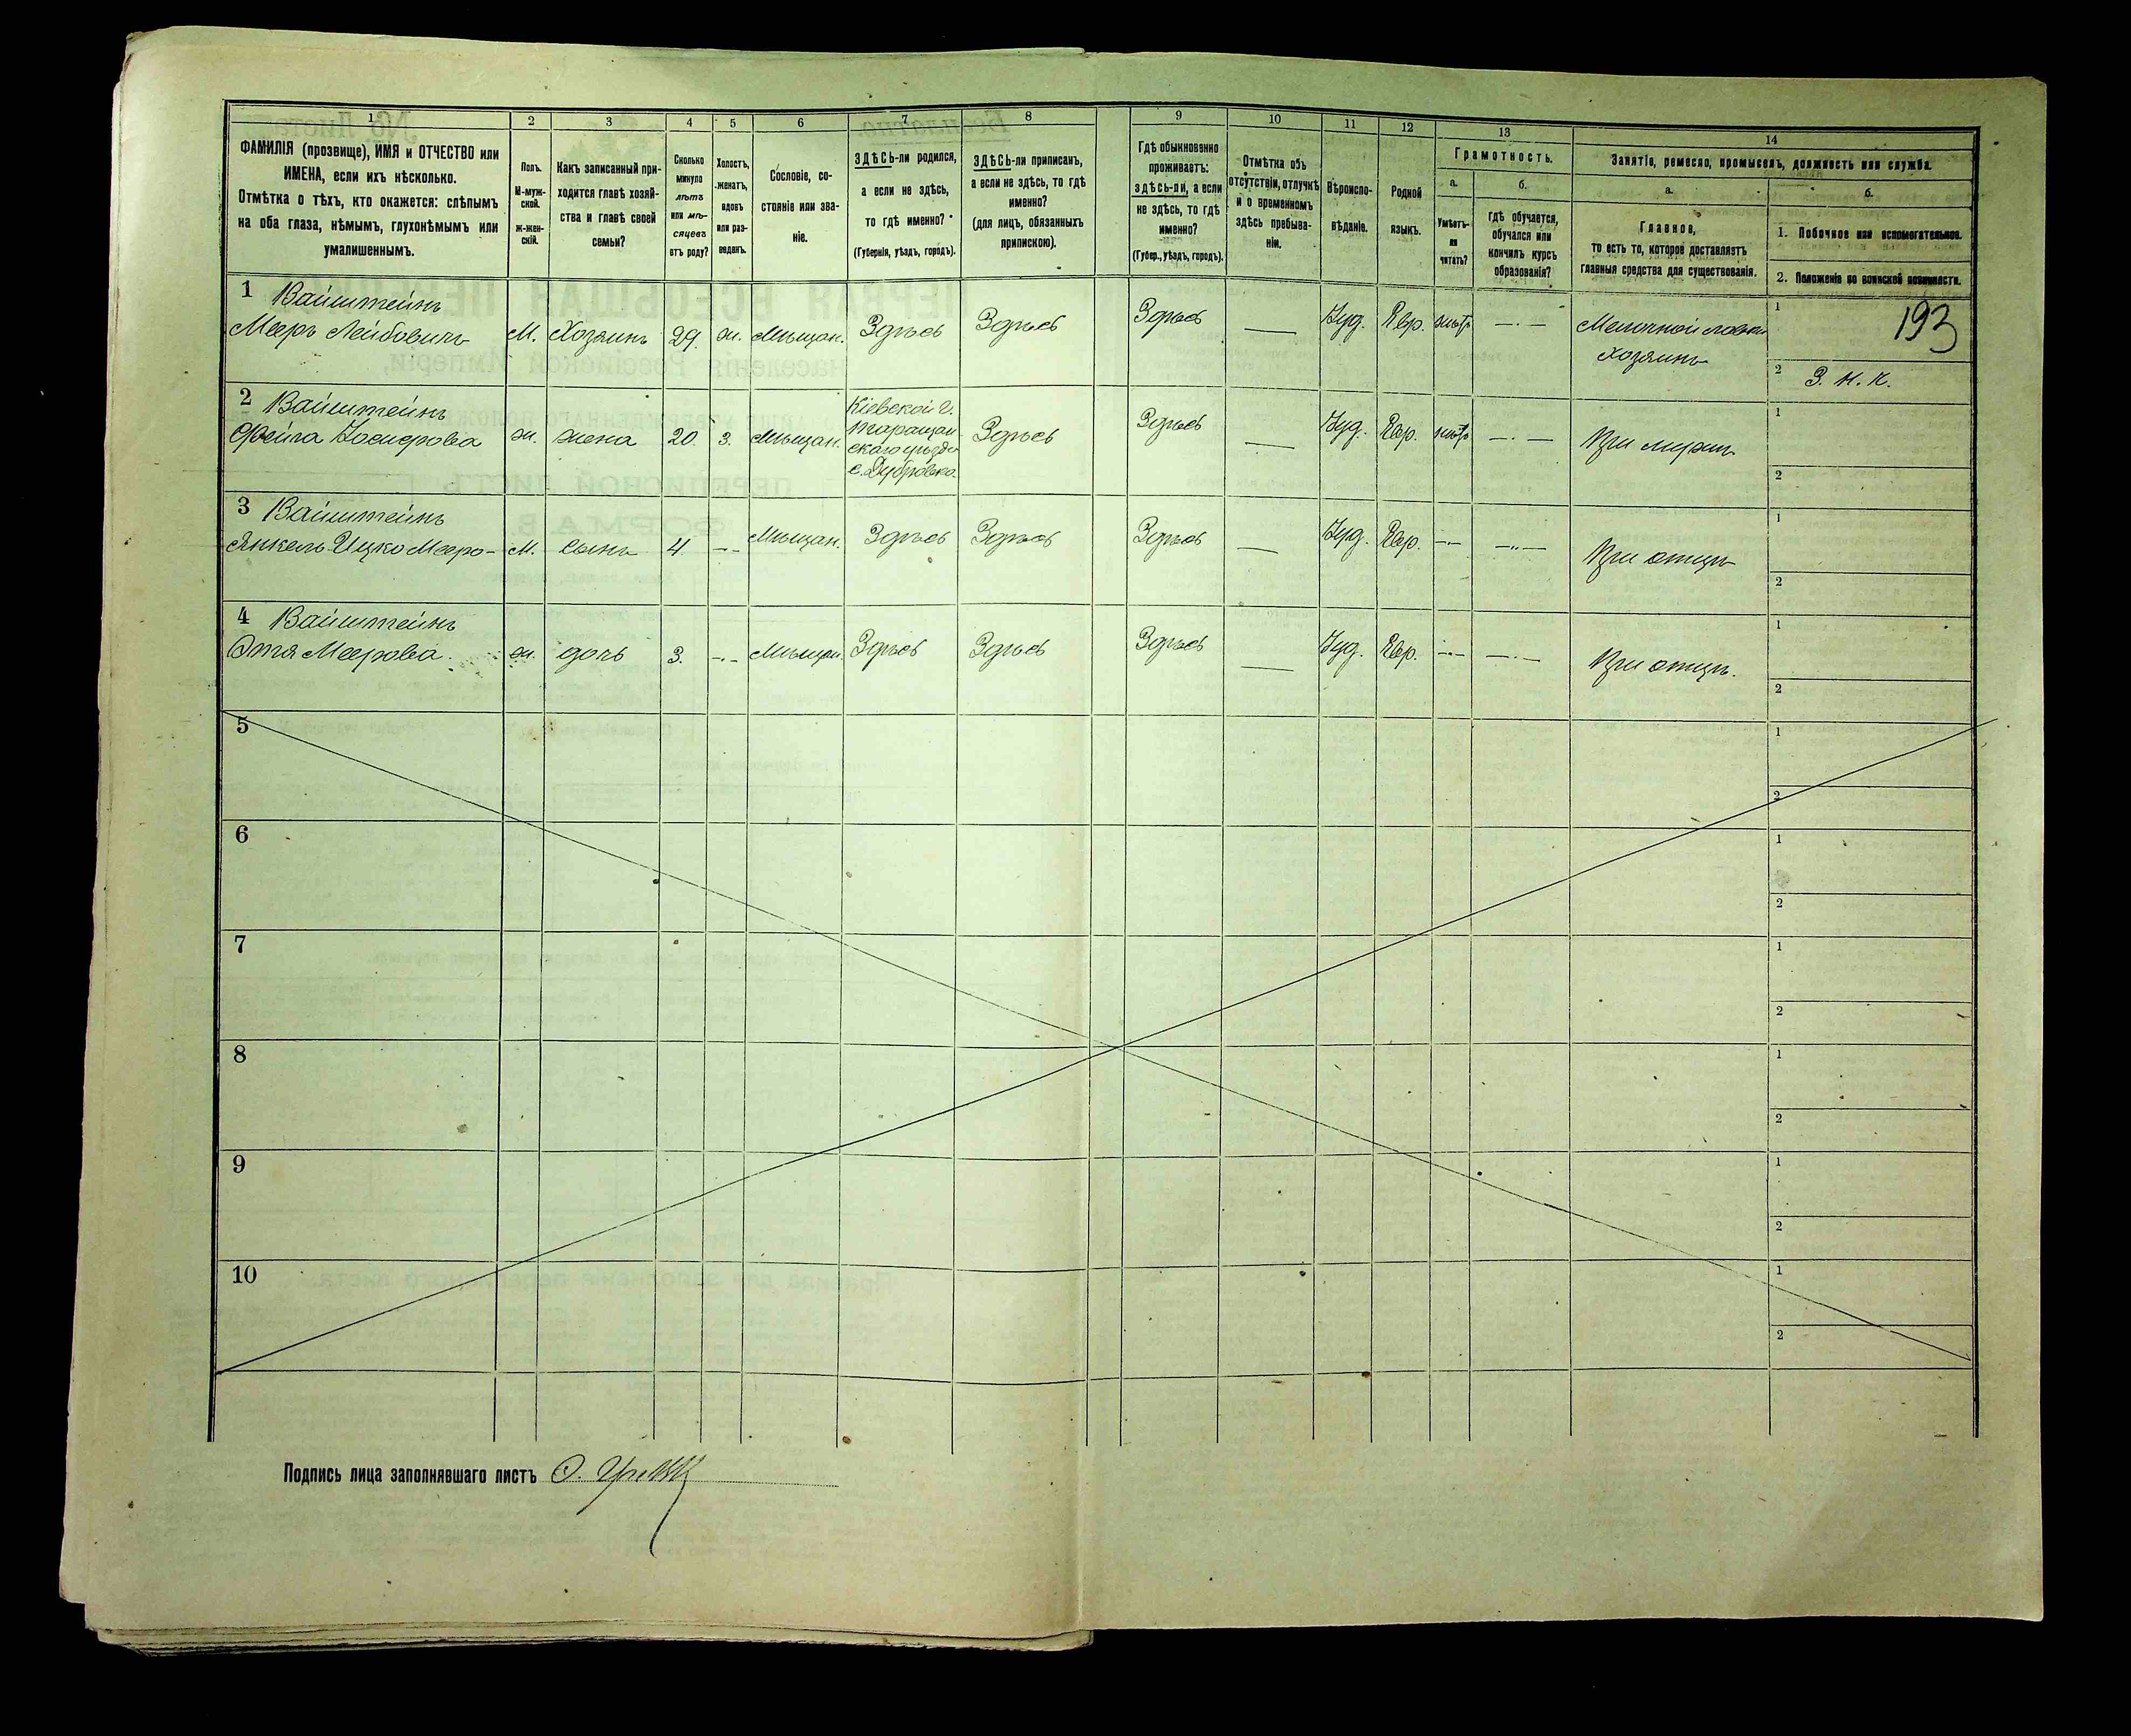 1
ФАМИЛІЯ (прозвище), ИМЯ и ОТЧЕСТВО или
ИМЕНА, если ихъ нѣсколько.
Отмѣтка о тѣхъ, кто окажется: слѣпымъ
на оба глаза, нѣмымъ, глухонѣмымъ или
умалишеннымъ.
2
Полъ.
М-муж-
ской.
Ж-жен-
скій.
3
Какъ записанный при-
ходится главѣ хозяй-
ства и главѣ своей
семьи?
4
Сколько
минуло
лѣтъ
или мѣ-
сяцевъ
отъ роду?
5
Холостъ,
женатъ,
вдовъ
или раз-
веденъ.
6
Сословіе, со-
стояніе или зва-
ніе.
7
ЗДѢСЬ-ли родился,
а если не здѣсь,
то гдѣ именно?
(Губернія, уѣздъ, городъ).
8
ЗДѢСЬ-ли приписанъ,
а если не здѣсь, то гдѣ
именно?
(для лицъ, обязанныхъ
припискою).
9
Гдѣ обыкновенно
проживаетъ:
здѣсь-ли, а если
не здѣсь, то гдѣ
именно?
(Губер., уѣздъ, городъ).
10
Отмѣтка объ
отсутствіи, отлучкѣ
и о временномъ
здѣсь пребыва-
ніи.
11
Вѣроиспо-
вѣданіе.
12
Родной
языкъ.
13
Грамотность.
а.
Умѣетъ-
ли
читать?
б.
гдѣ обучается,
обучался или
кончилъ курсъ
образованія?
14
Занятіе, ремесло, промыселъ, должность или служба.
а.
Главное,
то есть то, которое доставляетъ
главныя средства для существованія.
б.
1. Побочное или вспомогательное.
2. Положеніе по воинской повинности.
193
1 Вайнштейнъ
Мееръ Лейбовичъ М. Хозяинъ 29. ж. Мѣщан. Здѣсь Здѣсь Здѣсь — Іуд. Евр. Мелочной лавки
хозяинъ
1
2 З. Н. К.
2 Вайнштейнъ
Фейга ж. жена 20 з. Мѣщан. Кіевской г.
Таращан-
скаго уѣзда
с. Дубровка. Здѣсь Здѣсь — Іуд. Евр. При мужѣ
1
2
3 Вайнштейнъ
Янкель Ицко Мееро- М. сынъ 4 -.- Мѣщан. Здѣсь Здѣсь Здѣсь — Іуд. Евр. -.- -..- При отцѣ
1
2
4 Вайнштейнъ
Этя Меерова ж. дочь 3. -.- Мѣщан. Здѣсь Здѣсь Здѣсь — Іуд. Евр. -.- -.- При отцѣ.
1
2
5
1
2
6
1
2
7
1
2
8
1
2
9
1
2
10
1
2
Подпись лица заполнявшаго листъ